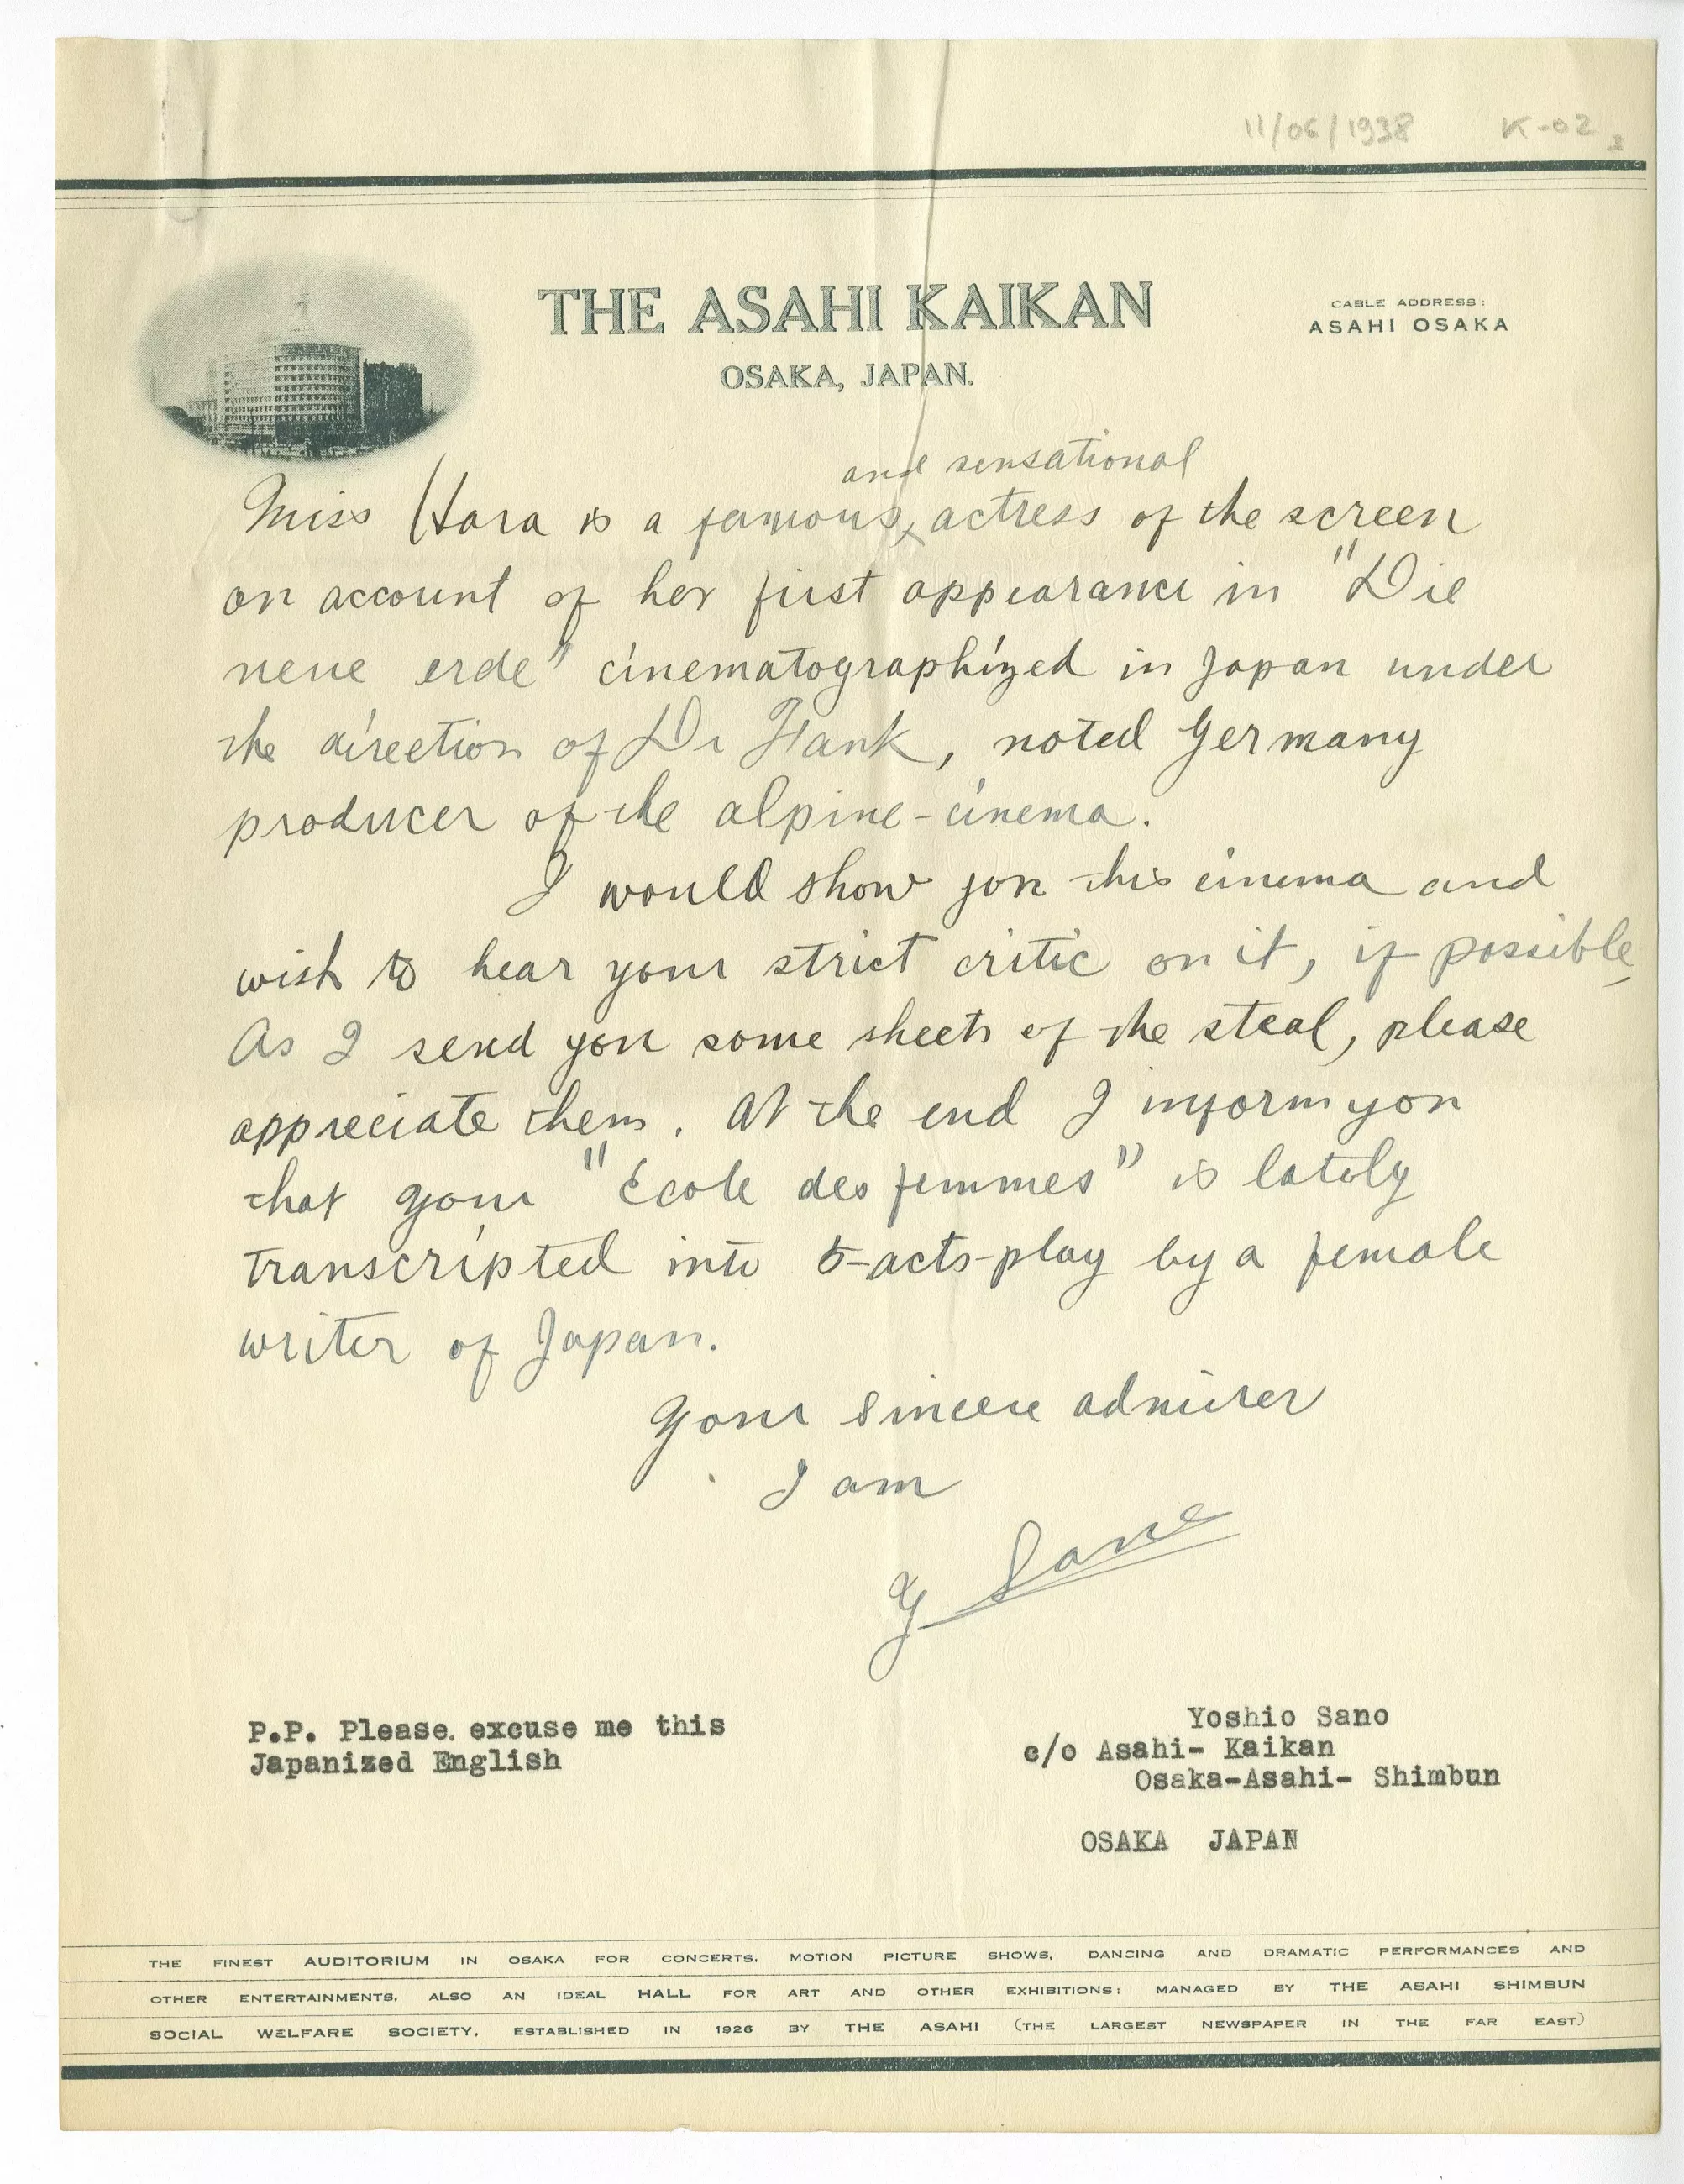 11/06/1938 K-02
THE ASAHI KAIKAN
OSAKA, JAPAN.
CABLE ADDRESS:
ASAHI OSAKA
and sensational
Miss Hara is a famous, actress of the screen
on account of her first appearance in "Die
neue erde" cinematographized in Japan under
the direction of Dr Fank, noted Germany
producer of the alpine-cinema.
I would show you this cinema and
wish to hear your strict critic on it, if possible
As I send you some sheets of the steal, please
appreciate them. At the end I inform you
that your "École des femmes" is lately
transcripted into 5-acts-play by a female
writer of Japan.
Your sincere admirer
I am
Y Sano
P.P. Please. excuse me this
Japanized English
Yoshio Sano
c/o Asahi- Kaikan
Osaka-Asahi- Shimbun
OSAKA JAPAN
THE FINEST AUDITORIUM IN OSAKA FOR CONCERTS, MOTION PICTURE SHOWS, DANCING AND DRAMATIC PERFORMANCES AND
OTHER ENTERTAINMENTS, ALSO AN IDEAL HALL FOR ART AND OTHER EXHIBITIONS; MANAGED BY THE ASAHI SHIMBUN
SOCIAL WELFARE SOCIETY, ESTABLISHED IN 1926 BY THE ASAHI (THE LARGEST NEWSPAPER IN THE FAR EAST)